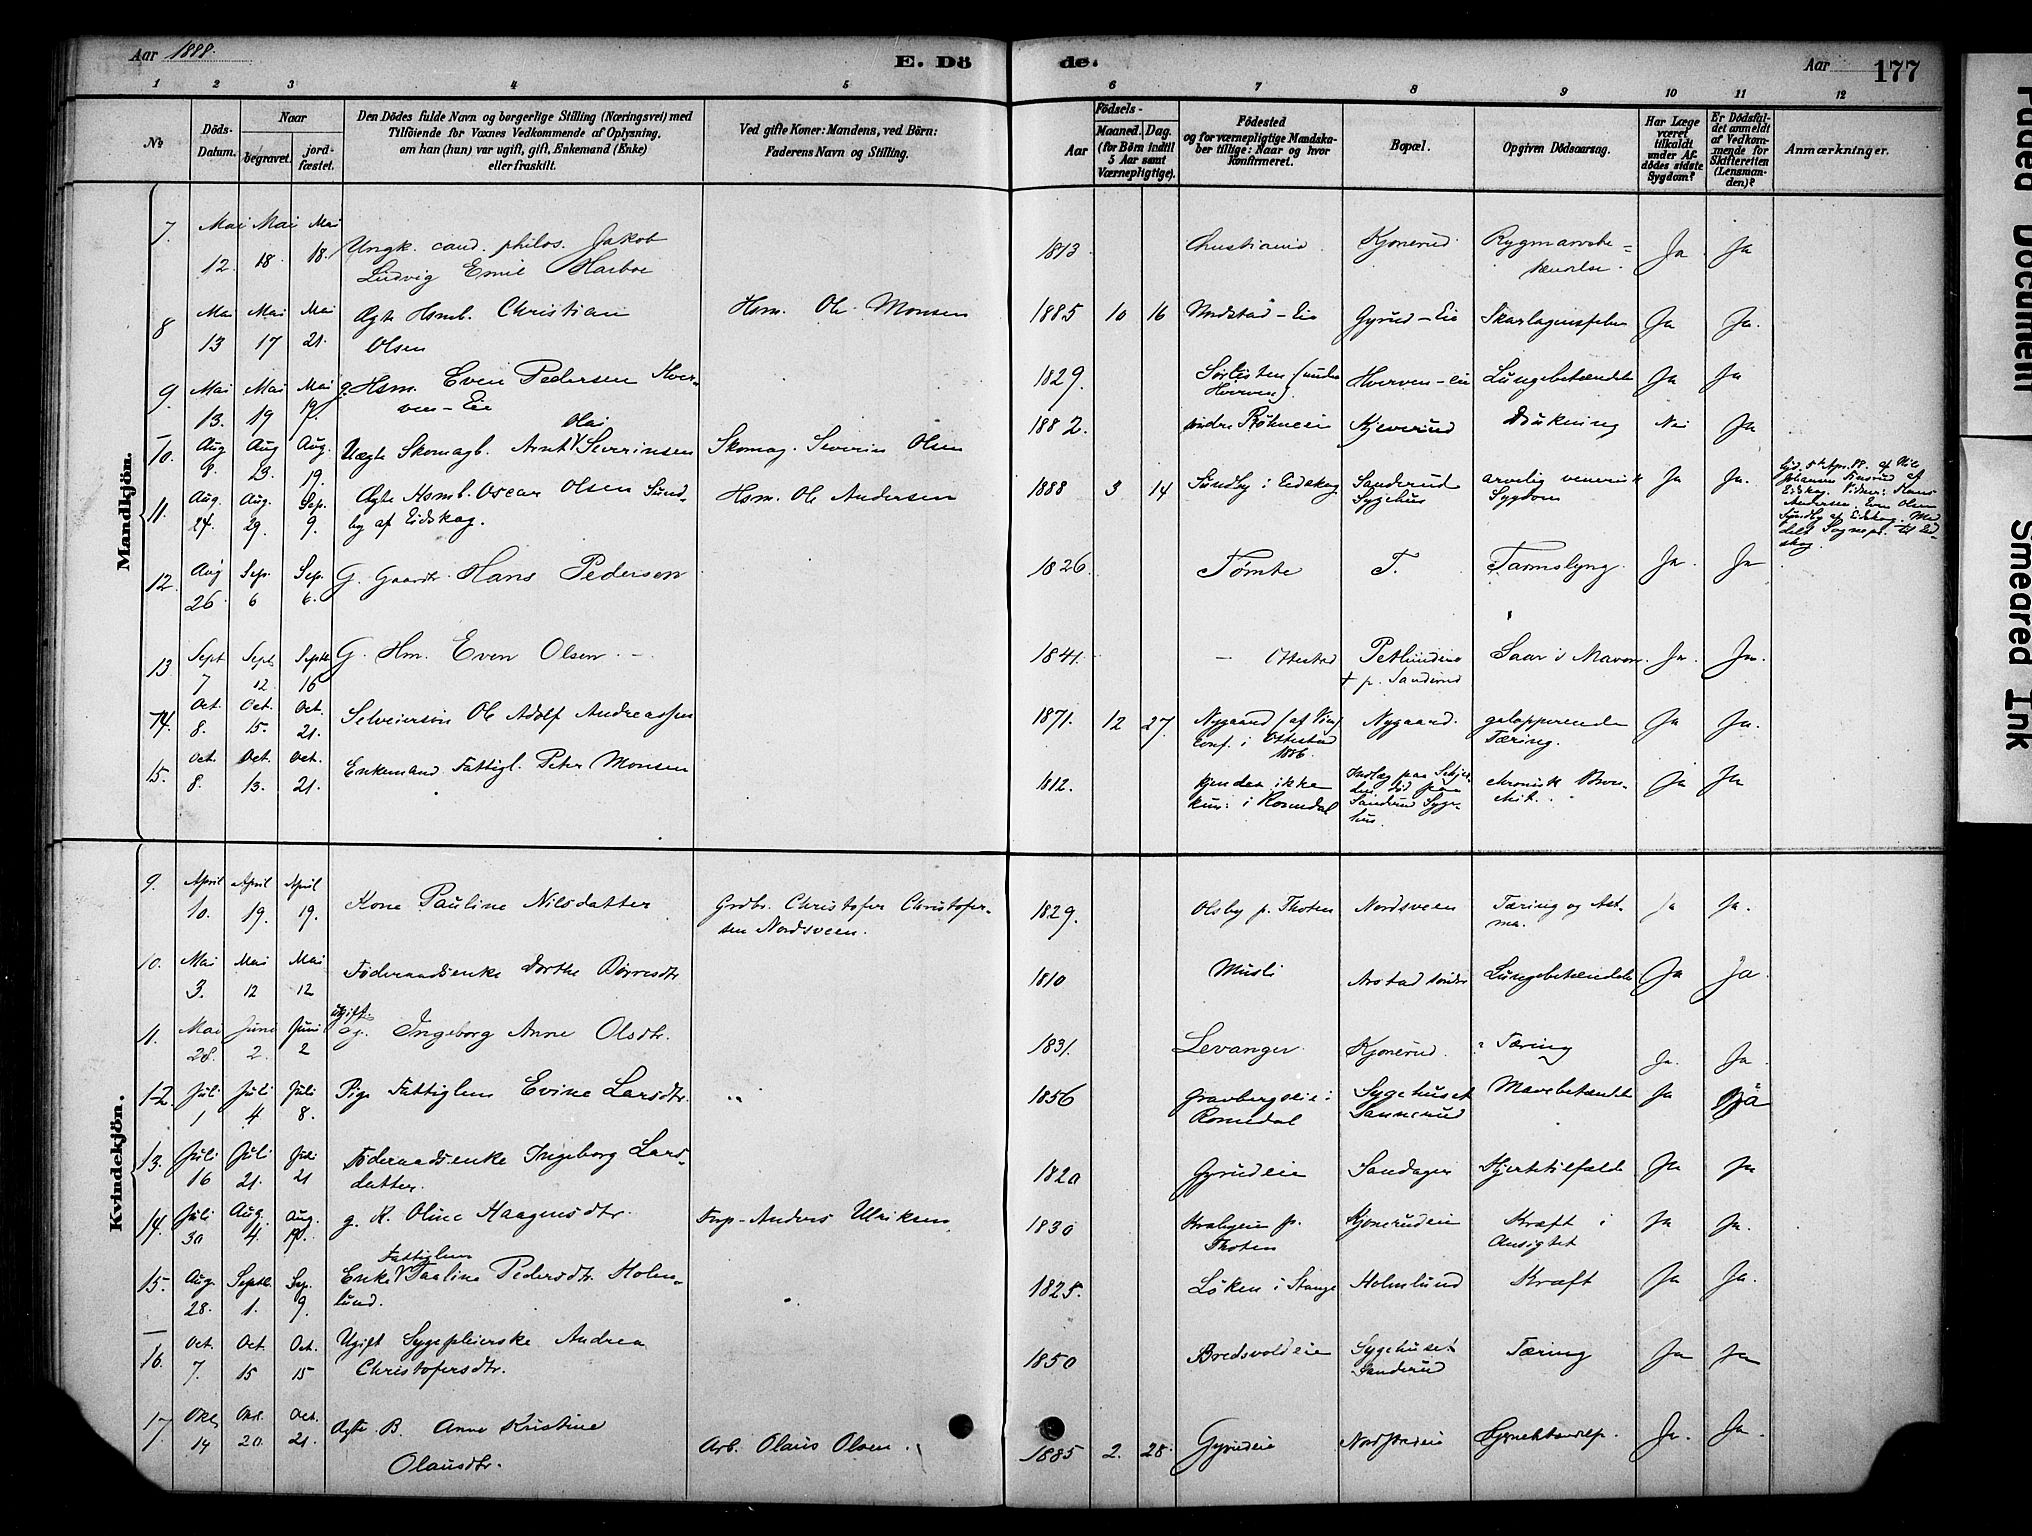 Aar 1888.
E. Dö
de.
Aar
177
1 2 3 4 5 6 7 8 9 10 11 12
№
Döds-Datum.
Naar
begravet.
jord-fæstet.
Den Dödes fulde Navn og borgerlige Stilling (Næringsvei) med
Tilföiende for Voxnes Vedkommende af Oplysning,
om han (hun) var ugift, gift, Enkemand (Enke)
eller fraskilt.
Ved gifte Koner: Mandens, ved Börn:
Faderens Navn og Stilling.
Födsels-
Aar
Maaned. Dag.
(for Börn indtil
5 Aar samt
Værnepligtige).
Födested
og for værnepligtige Mandska-
ber tillige: Naar og hvor
konfirmeret.
Bopæl.
Opgiven Dödsaarsag.
Har Læge
været
tilkaldt
under Af-
dödes sidste
Sygdom?
Er Dödsfal-
det anmeldt
af Vedkom-
mende for
Skifteretten
(Lensman-
den)?
Anmærkninger.
Mandkjön.
7. Mai 12. Mai 18. Mai 18. Ungk. cand. philos. Jakob
Ludvig Emil Harboe
1813 Christiania Kjonerud Rygmarvsbe-
tændelse. Ja Ja
8 Mai 13 Mai 17 Mai 21. Ægte Hsmb. Christian
Olsen
Hsm. Ole Monsen 1885 10 16 Gyrud-Eie Ja Ja.
9. Mai 13. Mai 19 Mai g. Hsm. Even Pedersen Hver-
ven-Eie
1829. (under
Hverven). Hverven-eie Lungebetændelse Ja Ja
10. Aug 8. Aug 23. Aug. 19. Uægte Skomagb. Arnt Olai Severinsen Skomag. Severin Olsen 1882. Kjeverud Drukning Nei Ja
11. Aug. 24. Aug. 29. Sep. 9. Ægte Hsmb. Oscar Olsen Sund-
by af Eidskog.
Hsm. Ole Andersen 1888 3 14 Sundby i Eidskog Sanderud
Sygehus
arvelig venerisk
Sygdom Ja Ja.
12. Aug 26. Sep. 6 Sep. 6. G. Gaardbr. Hans Pederson 1826. Tømte T. Tarmslyng Ja. Ja
13 Sept 7 Sept. 12. Septb 16 G. Hm. Even Olsen. - 1841. - Ottestad
+ p. Sanderud
Saar i Maven. Ja. Ja.
14. Oct. 8. Oct. 15. Oct. 21. Selveiersøn Ole Adolf Andreassen 1871. 12 27. Nygaard
Conf. i Ottestad
1886. Nygaard. galopperende
Tæring. Ja Ja.
15. Oct. 8. Oct. 13. Oct. 21. Enkemand Fattigl. Peter Monsen 1812. kjendes ikke
kun: i Romedal
Sanderud Syge-
hus. chronisk Bron-
chit. Ja Ja
Kvindekjön.
9. April 10. April 19. April 19. Kone Pauline Nilsdatter Grdbr. Christofer Christofer-
sen Nordsveen. 1829. Olsby p. Thoten Nordsveen Tæring og Ast-
ma. Ja Ja.
10. Mai 3. Mai 12 Mai 12 Føderaadsenke Dorthe 1810 Musli Lungebetændelse Ja Ja
11. Mai 28. Juni 2. Juni 2 ugift Ingeborg Anne Olsdtr. 1831. Levanger Kjonerud. Tæring Ja. Ja.
12. Juli 1 Juli 4 Juli 8. Pige Fattiglem Evine Larsdtr. „ 1856 Gravbergseie i
Romedal Sygehuset
Sannerud Mavebetændelse Ja Ja
13. Juli 16 Juli 21. Juli 21 Føderaadsenke Ingeborg Lars-
datter. 1820 Gyrudeie Sandager Hjertetilfælde Ja Ja
14. Juli 30 Aug. 4 Aug. g. K. Oline Haagensdtr. Anders Ulriksen 1830 p.
Thoten Kjonerudeie Kræft i
Ansigtet Ja Ja
15. Aug. 28. Septb. 1. Sep. 9. Fattiglem
Enke Paaline Pedersdtr. Holm-
lund. 1825. Løken i Stange Holmlund Kræft Ja Ja.
16. Oct. 7. Oct 15 Oct. 15 Ugift Sygepleierske Andrea
Christofersdtr. 1850 Bredsvoldeie Sygehuset
Sanderud Tæring Ja Ja
17 Okt. 14 Okt. 20. Oct. 21. Ægte B. Anne Kristine
Olausdtr. Arb. Olaus Olsen. 1885 2. 28. Gyrudeie Ja. Ja.
Faded Document
Smeared Ink